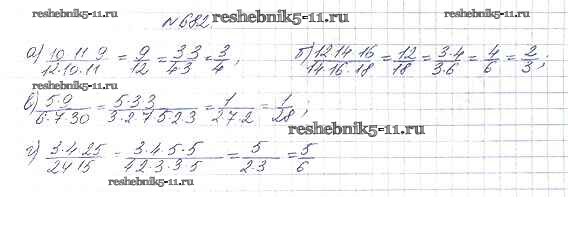 №682 reshebnik5-11.ru
reshebnik5-11.ru
а) 10 11 9 / 12·10·11 = 9/12 = 3·3/4·3 = 3/4; б) 12 14 16 / 14 16·18 = 12/18 = 3·4/3·6 = 4/6 = 2/3;
reshebnik5-11.ru
в) 5·9 / 6·7 30 = 5·3 3 / 3·2·7 5·2·3 = 1 / 2 7·2 = 1/28;
reshebnik5-11.ru
г) 3·4 25 / 24 15 = 3·4·5·5 / 4 2·3·3 5 = 5 / 2·3 = 5/6
reshebnik5-11.ru